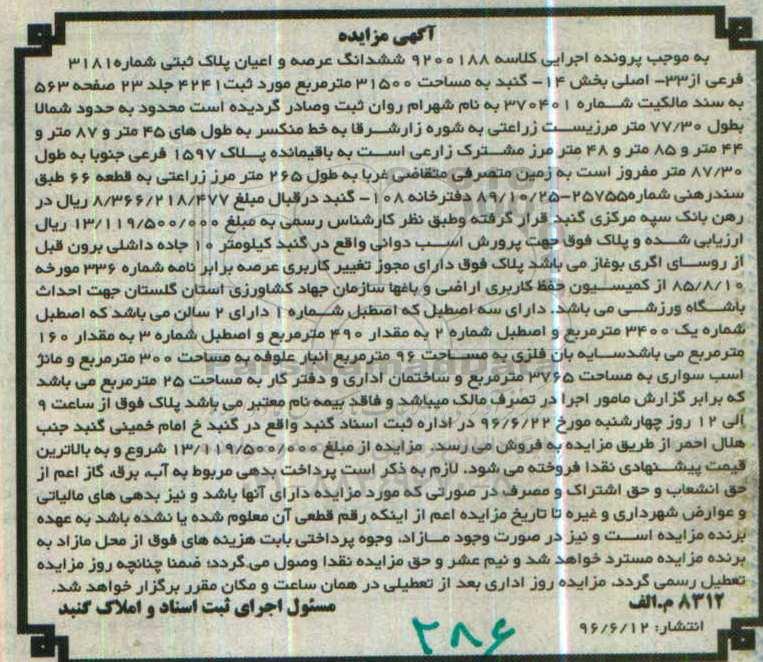 آگهی مزایده
به موجب پرونده اجرایی کلاسه ۹۲۰۰۱۸۸ ششدانگ عرصه و اعیان پلاک ثبتی شماره ۳۱۸۱
فرعی از۳۳- اصلی بخش ۱۴- گنبد به مساحت ۳۱۵۰۰ مترمربع مورد ثبت ۴۲۴۱ جلد ۲۳ صفحه ۵۶۳
به سند مالکیت شماره ۳۷۰۴۰۱ به نام شهرام روان ثبت وصادر گردیده است محدود به حدود شمالا
بطول ۷۷/۳۰ متر مرزیست زراعتی به شوره زارشرقا به خط منکسر به طول های ۴۵ متر و ۸۷ متر و
۴۴ متر و ۸۵ متر و ۴۸ متر مرز مشترک زارعی است به باقیمانده پلاک ۱۵۹۷ فرعی جنوبا به طول
۸۷/۳۰ متر مفروز است به زمین متصرفی متقاضی غربا به طول ۲۶۵ متر مرز زراعتی به قطعه ۶۶ طبق
سندرهنی شماره۲۵۷۵۵-۸۹/۱۰/۲۵ دفترخانه ۱۰۸- گنبد درقبال مبلغ ۸/۳۶۶/۲۱۸/۴۷۷ ریال در
رهن بانک سپه مرکزی گنبد قرار گرفته وطبق نظر کارشناس رسمی به مبلغ ۱۳/۱۱۹/۵۰۰/۰۰۰ ریال
ارزیابی شده و پلاک فوق جهت پرورش اسب دوانی واقع در گنبد کیلومتر ۱۰ جاده داشلی برون قبل
از روسای اگری بوغاز می باشد پلاک فوق دارای مجوز تغییر کاربری عرصه برابر نامه شماره ۳۳۶ مورخه
۸۵/۸/۱۰ از کمیسیون حفظ کاربری اراضی و باغها سازمان جهاد کشاورزی استان گلستان جهت احداث
باشگاه ورزشی می باشد. دارای سه اصطبل که اصطبل شماره ۱ دارای ۲ سالن می باشد که اصطبل
شماره یک ۳۴۰۰ مترمربع و اصطبل شماره ۲ به مقدار ۴۹۰ مترمربع و اصطبل شماره ۳ به مقدار ۱۶۰
مترمربع می باشدسایه بان فلزی به مساحت ۹۶ مترمربع انبار علوفه به مساحت ۳۰۰ مترمربع و مانژ
اسب سواری به مساحت ۳۷۶۵ مترمربع و ساختمان اداری و دفتر کار به مساحت ۲۵ مترمربع می باشد
که برابر گزارش مامور اجرا در تصرف مالک میباشد و فاقد بیمه نام معتبر می باشد پلاک فوق از ساعت ۹
الی ۱۲ روز چهارشنبه مورخ ۹۶/۶/۲۲ در اداره ثبت اسناد گنبد واقع در گنبد خ امام خمینی گنبد جنب
هلال احمر از طریق مزایده به فروش می رسد. مزایده از مبلغ ۱۳/۱۱۹/۵۰۰/۰۰۰ شروع و به بالاترین
قیمت پیشنهادی نقدا فروخته می شود. لازم به ذکر است پرداخت بدهی مربوط به آب، برق، گاز اعم از
حق انشعاب و حق اشتراک و مصرف در صورتی که مورد مزایده دارای آنها باشد و نیز بدهی های مالیاتی
و عوارض شهرداری و غیره تا تاریخ مزایده اعم از اینکه رقم قطعی آن معلوم شده یا نشده باشد به عهده
برنده مزایده است و نیز در صورت وجود مازاد، وجوه پرداختی بابت هزینه های فوق از محل مازاد به
برنده مزایده مسترد خواهد شد و نیم عشر و حق مزایده نقدا وصول می گردد؛ ضمنا چنانچه روز مزایده
تعطیل رسمی گردد، مزایده روز اداری بعد از تعطیلی در همان ساعت و مکان مقرر برگزار خواهد شد.
۸۳۱۲ م.الف مسئول اجرای ثبت اسناد و املاک گنبد
انتشار: ۹۶/۶/۱۲
۲۸۶
ParsNamadData